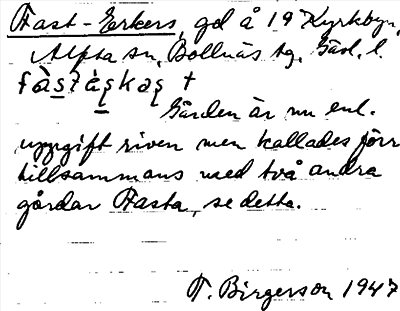 Fast-Erkers, gd å 19 Kyrkbyn,
Alfta sn, Bollnäs tg. Gävl. l.
Gården är nu enl.
uppgift riven men kallades förr
tillsammans med två andra
gårdar Fasta, se detta.
T. Birgerson 1947